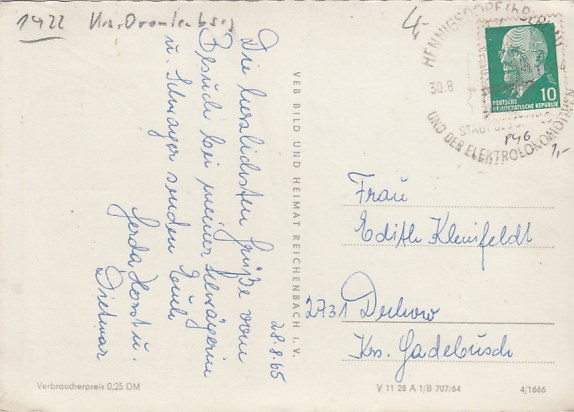 1422 Krs. Oranienburg
4,-
HENNIGSDORF (b
30.8
STADT DES
UND DER ELEKTROLOKOMOTIVEN
10
DEUTSCHE
DEMOKRATISCHE REPUBLIK
P46
1,-
Die herzlichsten Grüße vom
Besuch bei meiner Schwägerin
u. Schwager senden Euch
Gerda Horst u.
Dietmar
28.8.65
VEB BILD UND HEIMAT REICHENBACH I. V.
Frau
Edith Kleinfeldt
2731 Dechow
Krs. Gadebusch
Verbraucherpreis 0,25 DM
V 11 28 A 1/B 707/64
4/1666